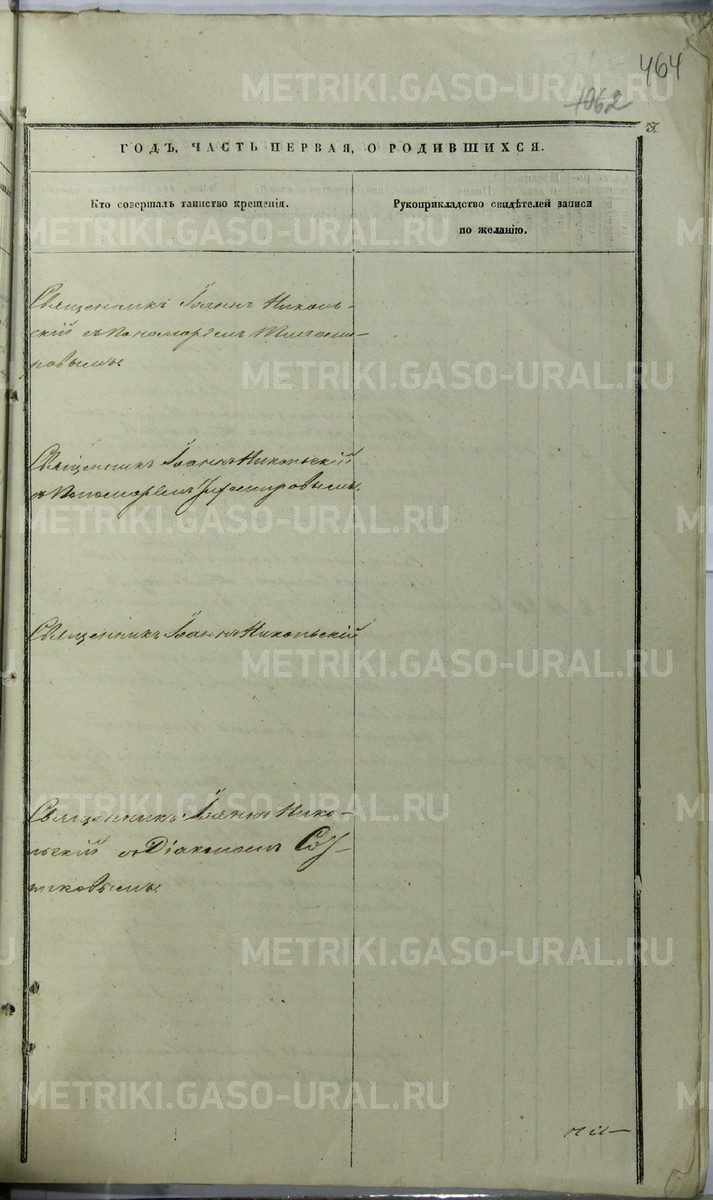 464
1062
ГОДЪ, ЧАСТЬ ПЕРВАЯ, О РОДИВШИХСЯ.
Кто совершалъ таинство крещенія.
Рукоприкладство свидѣтелей записи
по желанію.
Священникъ Іоаннъ Николь-
скій съ Пономаремъ
ровымъ.
Священникъ Іоаннъ Никольскій
съ Пономаремъ
Священникъ Іоаннъ Никольскій
Священникъ Іоаннъ Нико-
льскій съ Діакономъ
METRIKI.GASO-URAL.RU